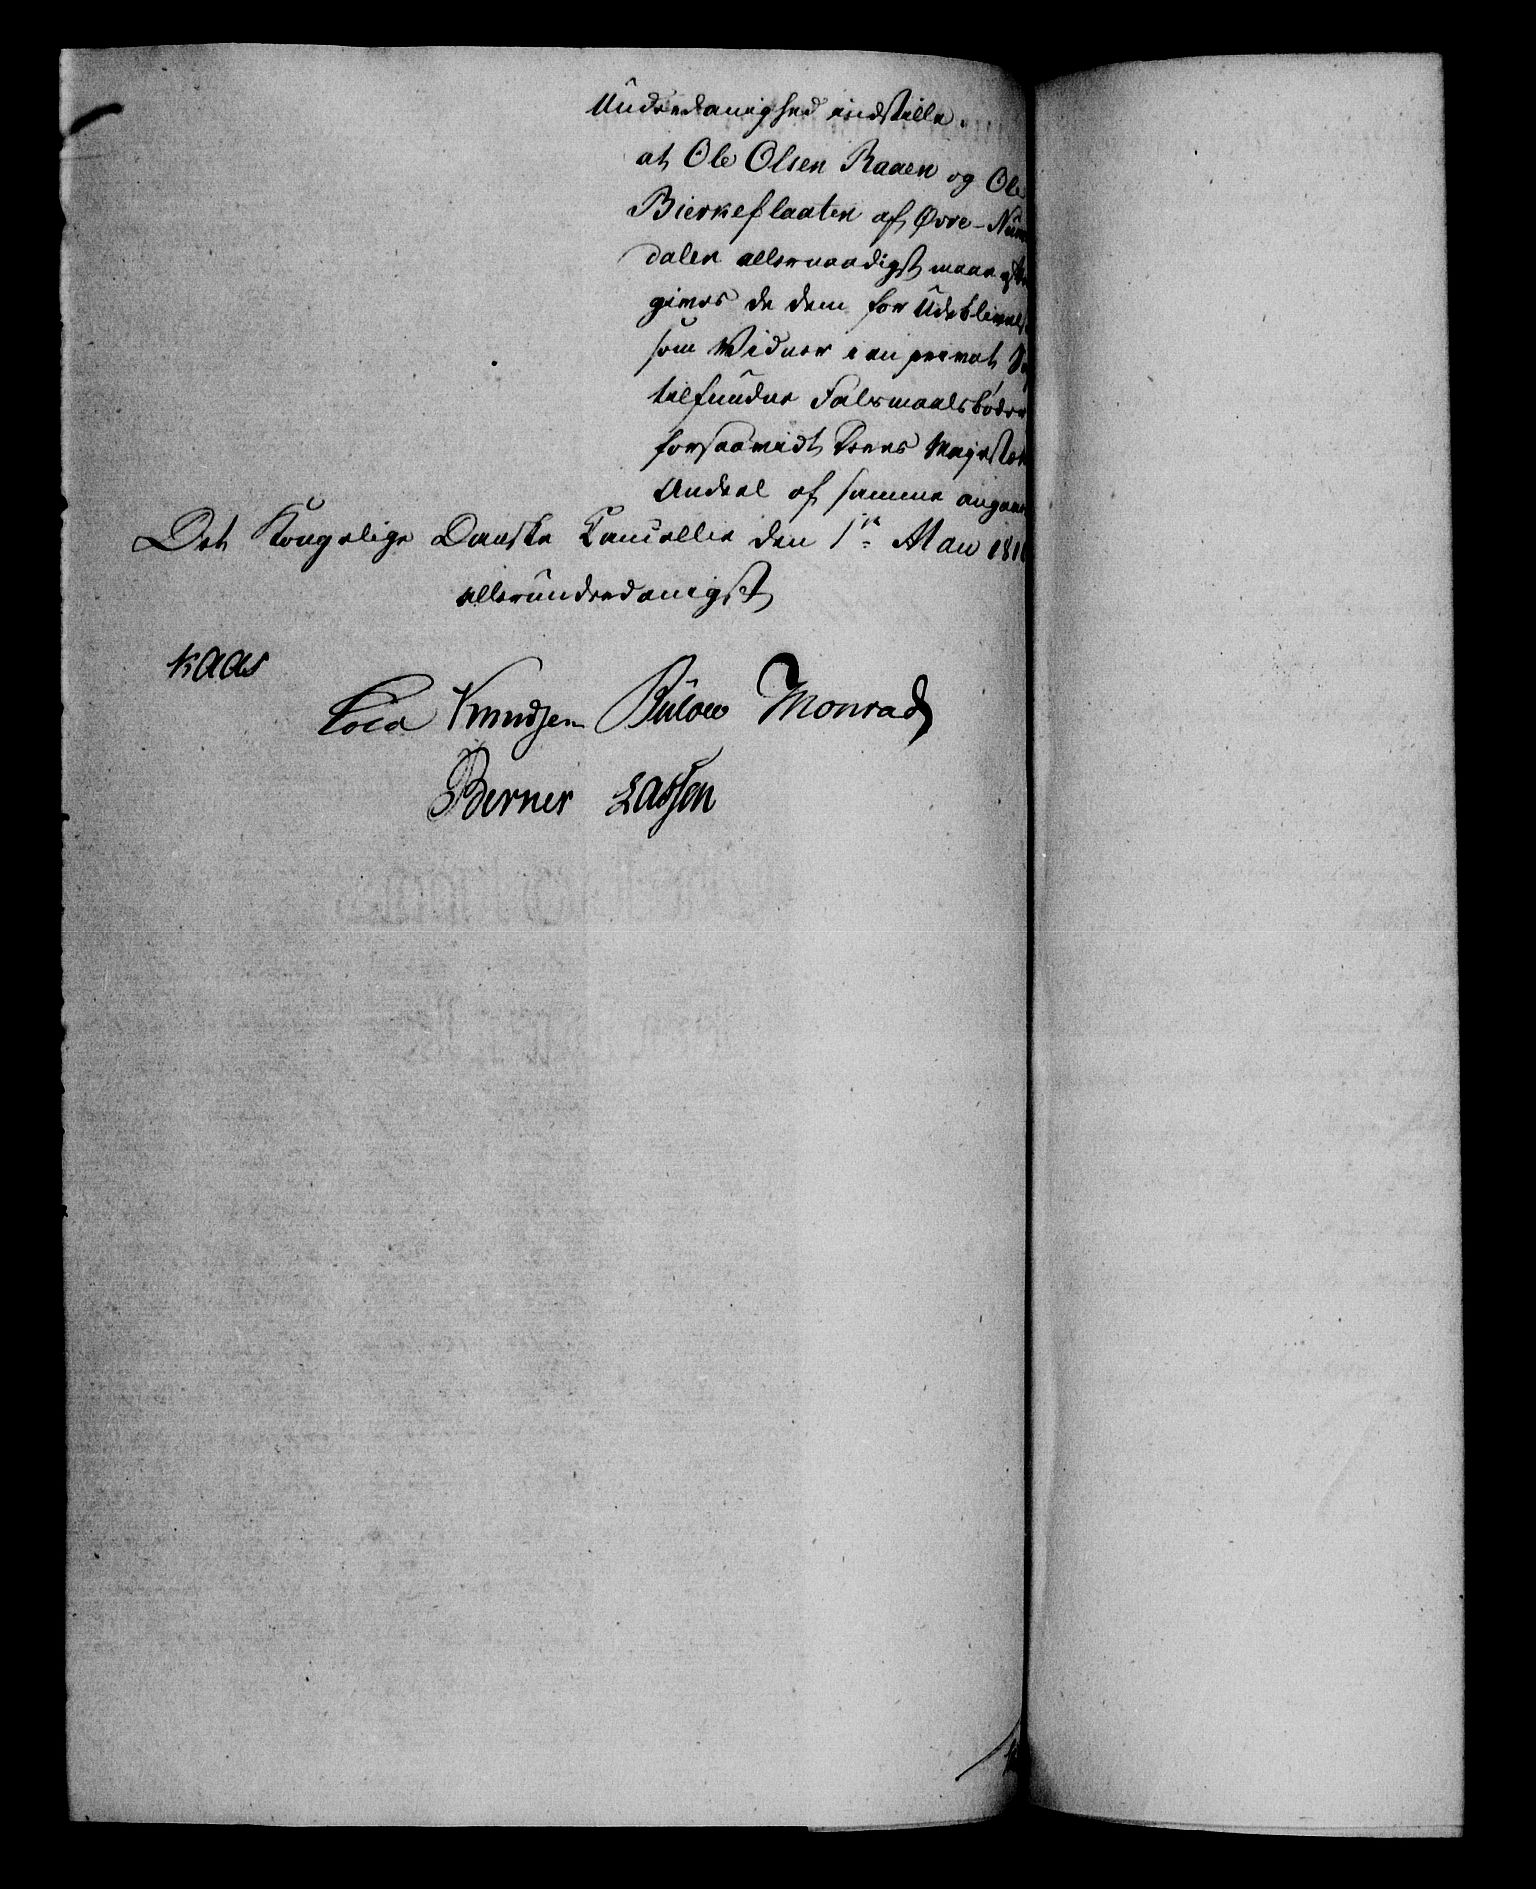 Underdanighed indstille.
at Ole Olsen Raaen og Ole
Bierkeflaaten af Øvre-Num
dalen allernaadigst maae efter
gives de dem for Udeblivelse
som Vidner i en privat
tilfundne Falsmaalsbøder
forsaavidt Deres Majestæts
Andeel af samme angaaer
Det Kongelige Danske Cancellie den 1ste Mai 181
allerunderdanigst
Kaas
Cold Knudsen Bülow Monrad
Berner Lassen